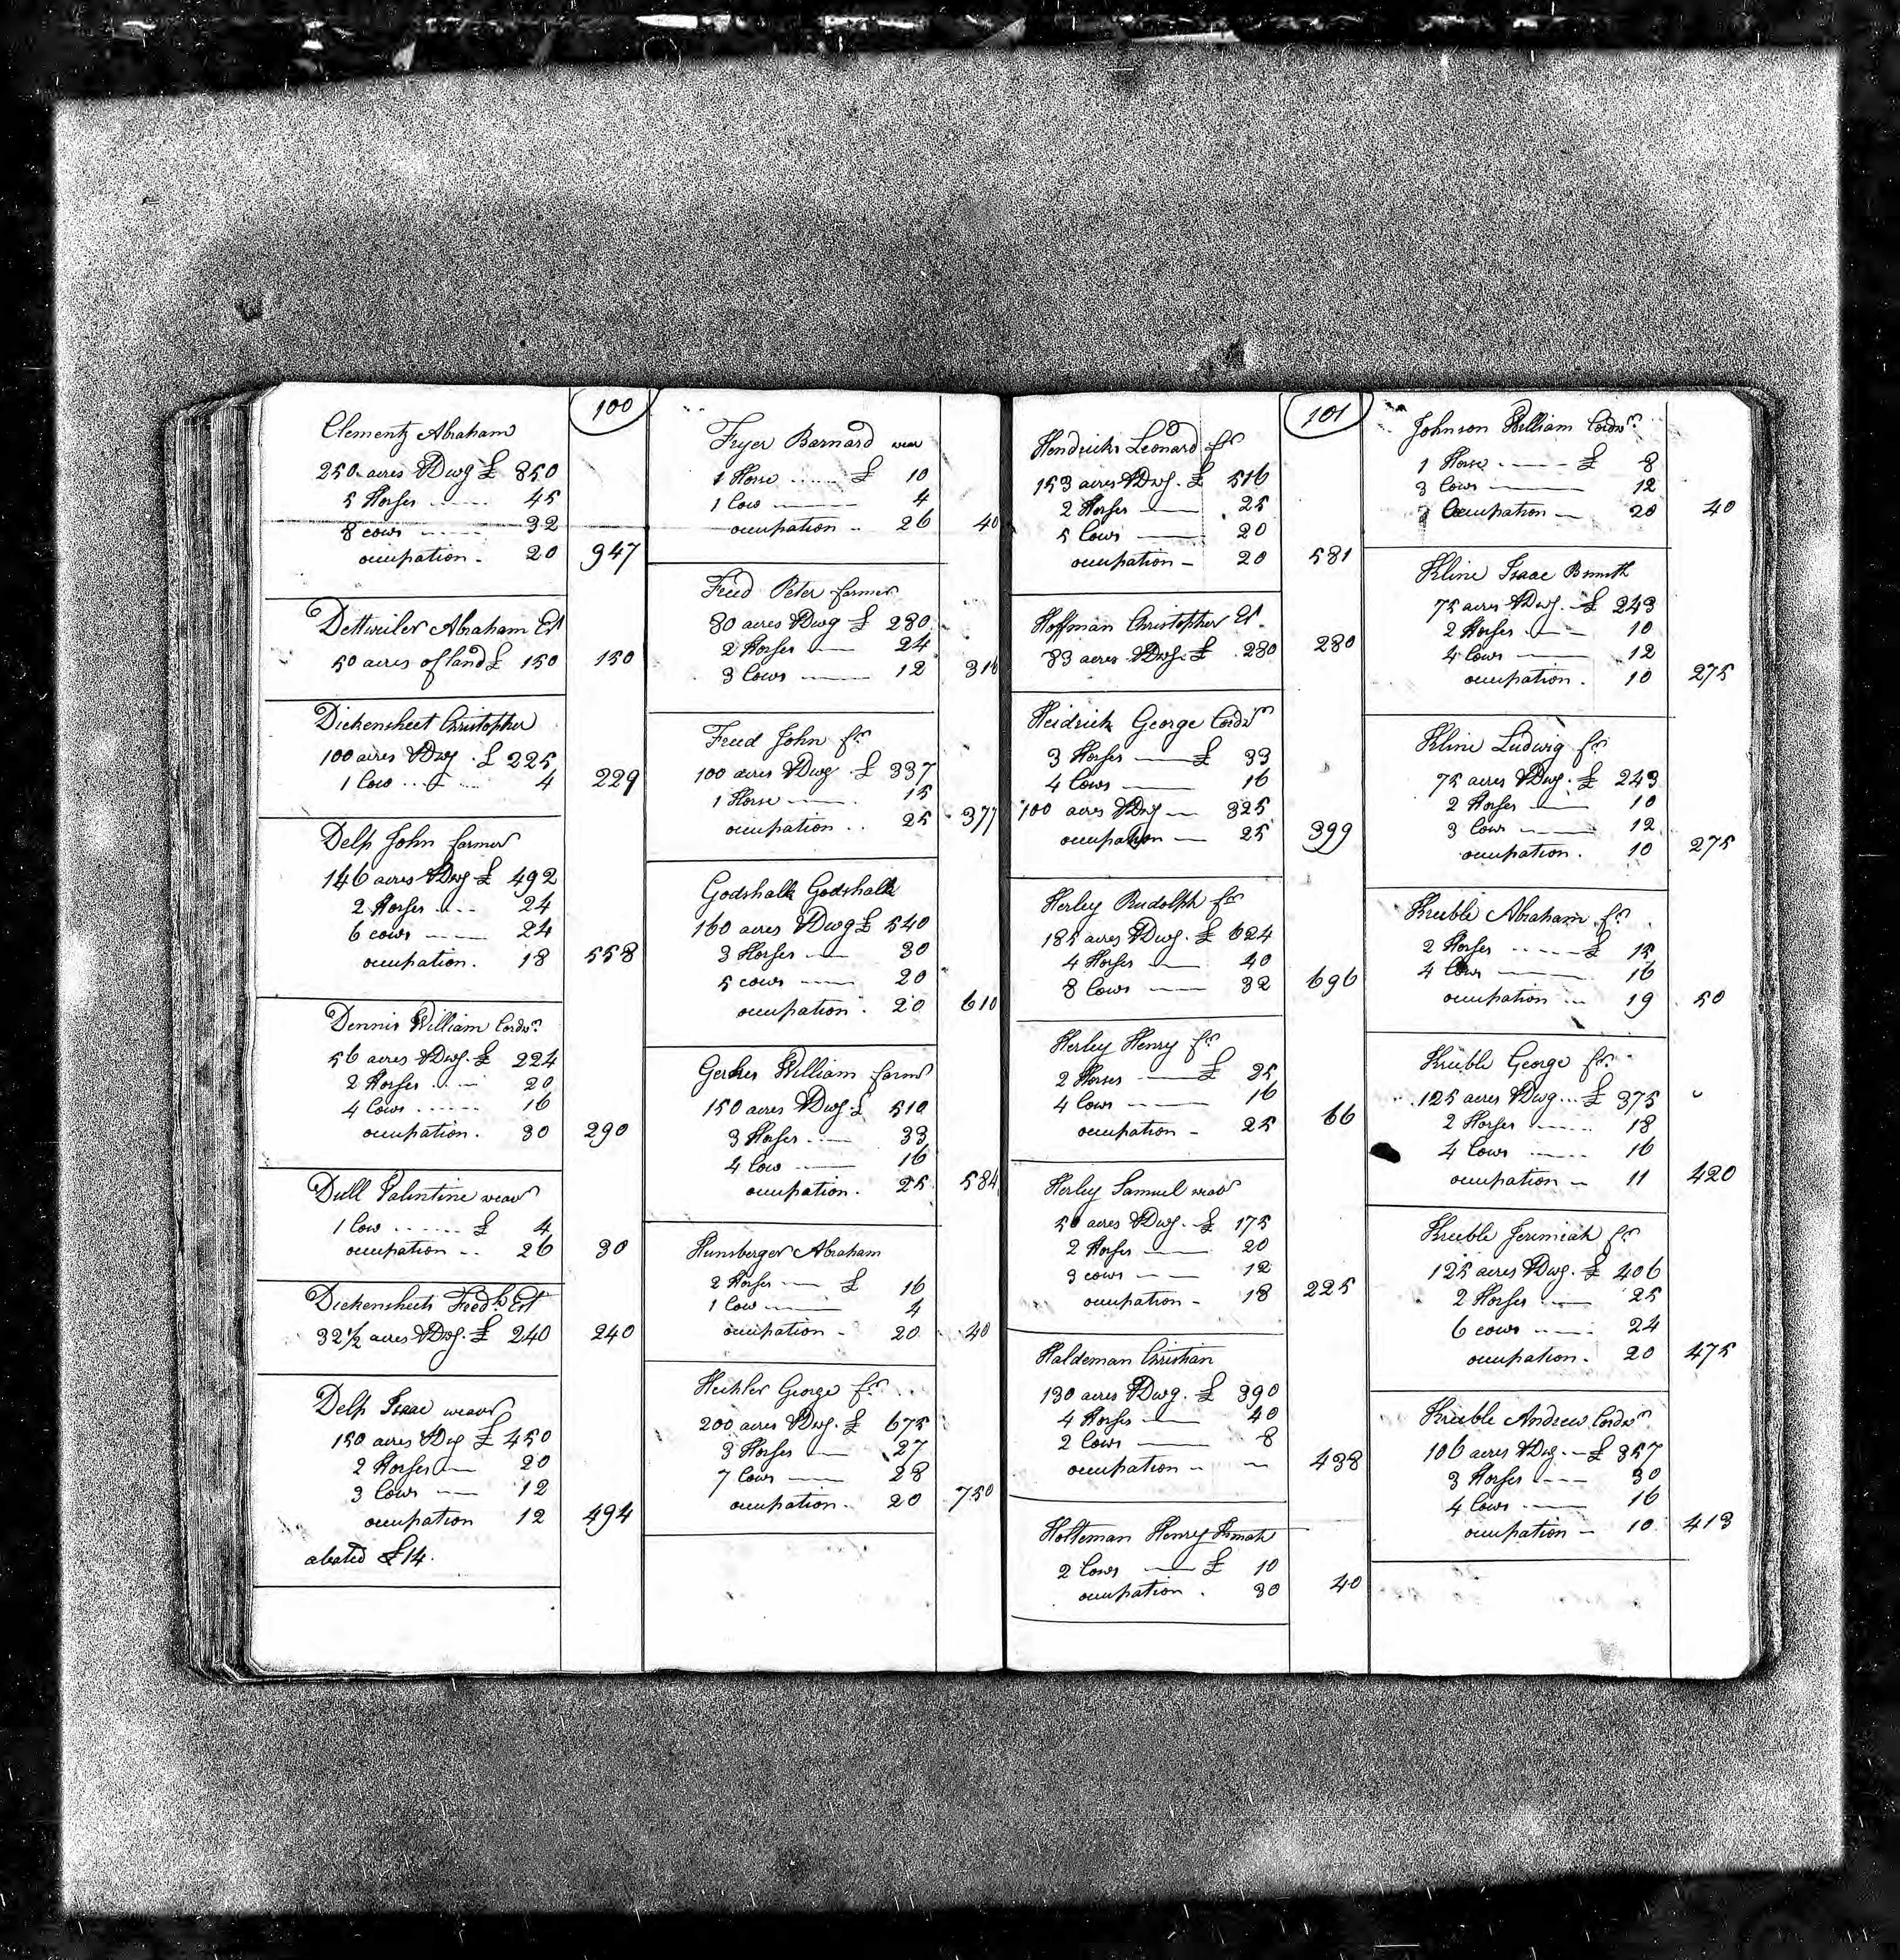 100
Clementz Abraham
250 acres &Dwg £ 850
5 Horses ...... 45
8 cows ...... 32
occupation - 20 947
Dettweiler Abraham Est
50 acres of land £ 150 150
Dickensheet Christopher
100 acres &Dwg . £ 225
1 Cow ... £ ... 4 229
Delp John farmer
146 acres &Dwg £ 492
2 Horses ... 24
6 cows ---- 24
occupation. 18 558
Dennis William Cordwr.
56 acres &Dwg. £ 224
2 Horses ... 20
4 Cows ...... 16
occupation. 30 290
Dull Valentine weavr
1 Cow ...... £ 4
occupation ... 26 30
Dickensheets Fredk. Est
32 1/2 acres &Dwg. £ 240 240
Delp Isaac weavr
150 acres &Dwg £ 450
2 Horses — 20
3 Cows — 12
occupation 12 494
abated £14.
Fryer Barnard wear
1 Horse ...... £ 10
1 Cow ——— 4
occupation .. 26 40
Fried Peter farmer
80 acres &Dwg £ 280
2 Horses — 24
3 Cows —— 12 316
Fried John fr.
100 acres &Dwg . £ 337
1 Horse —— . 15
occupation .. 25 377
Godshalk Godshalk
160 acres &Dwg £ 540
3 Horses — 30
5 cows —— 20
occupation . 20 610
Gerhes William farmr
150 acres &Dwg £ 510
3 Horses — 33
4 Cow —— 16
occupation. 25 584
Hunsberger Abraham
2 Horses — £ 16
1 Cow —— 4
occupation - 20 40
Heckler George fr.
200 acres &Dwg. £ 675
3 Horses — 27
7 Cows —— 28
occupation. 20 750
101
Hendricks Leonard fr.
153 acres &Dwg. £ 516
2 Horses —— 25
5 Cows —— 20
occupation - 20 581
Hoffman Christopher Est.
83 acres &Dwg. £ 280 280
Heidrick George Cordwr
3 Horses —— £ 33
4 Cows —— 16
100 acres &Dwg — 325
occupation — 25 399
Herley Rudolph fr.
185 acres &Dwg. £ 624
4 Horses —— 40
8 Cows —— 32 696
Herley Henry fr.
2 Horses —— £ 25
4 Cows ---- 16
occupation - 25 66
Herley Samuel weavr
50 acres &Dwg. £ 175
2 Horses —— 20
3 cows —— 12
occupation - 18 225
Haldeman Christian
130 acres &Dwg. £ 390
4 Horses —— 40
2 Cows —— 8
occupation - — 438
Holteman Henry
2 Cows —— £ 10
occupation . 30 40
Johnson William Cordwr.
1 Horse. —— £ 8
3 Cows ——— 12
Occupation — 20 40
Kline Isaac Bsmith
75 acres &Dwg. £ 243
2 Horses —— 10
4 Cows —— 12
occupation . 10 275
Kline Ludwig fr.
75 acres &Dwg. £ 243
2 Horses —— 10
3 Cows —— 12
occupation. 10 275
Krieble Abraham fr.
2 Horses ..... £ 15
4 Cows ——— 16
occupation ... 19 50
Krieble George fr.
125 acres &Dwg... £ 375
2 Horses ...... 18
4 Cows ...... 16
occupation — 11 420
Krieble Jerimiah fr.
125 acres &Dwg. £ 406
2 Horses —— 25
6 cows —— 24
occupation. 20 475
Krieble Andrew Cordwr
106 acres &Dwg. £ 357
3 Horses ---- 30
4 Cows —— 16
occupation — 10 413